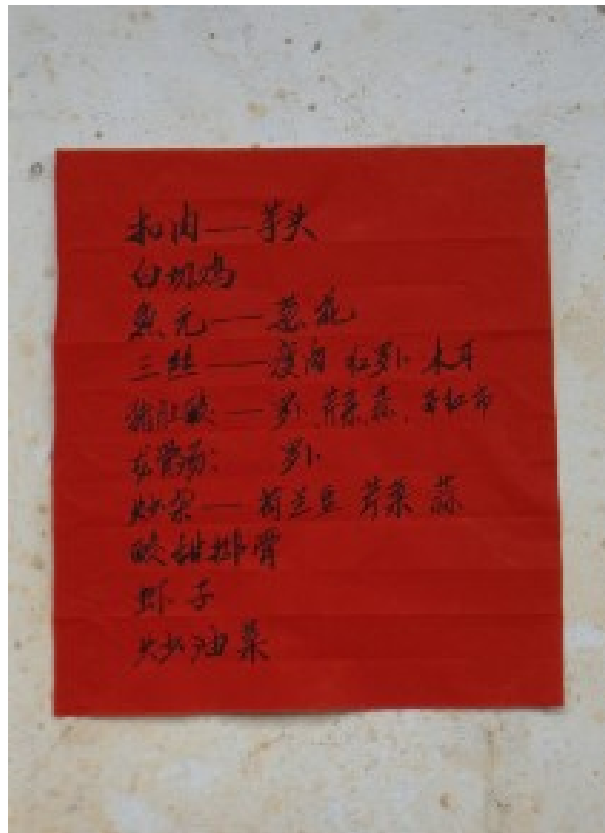 扣肉——芋头
白切鸡
鱼元——葱花
三丝——瘦肉 红萝卜 木耳
猪肚 —— 萝卜 芹菜 蒜、西红市
龙骨汤: 萝卜
炒 —— 荷兰豆 芹菜 蒜
酸甜排骨
虾子
炒油菜